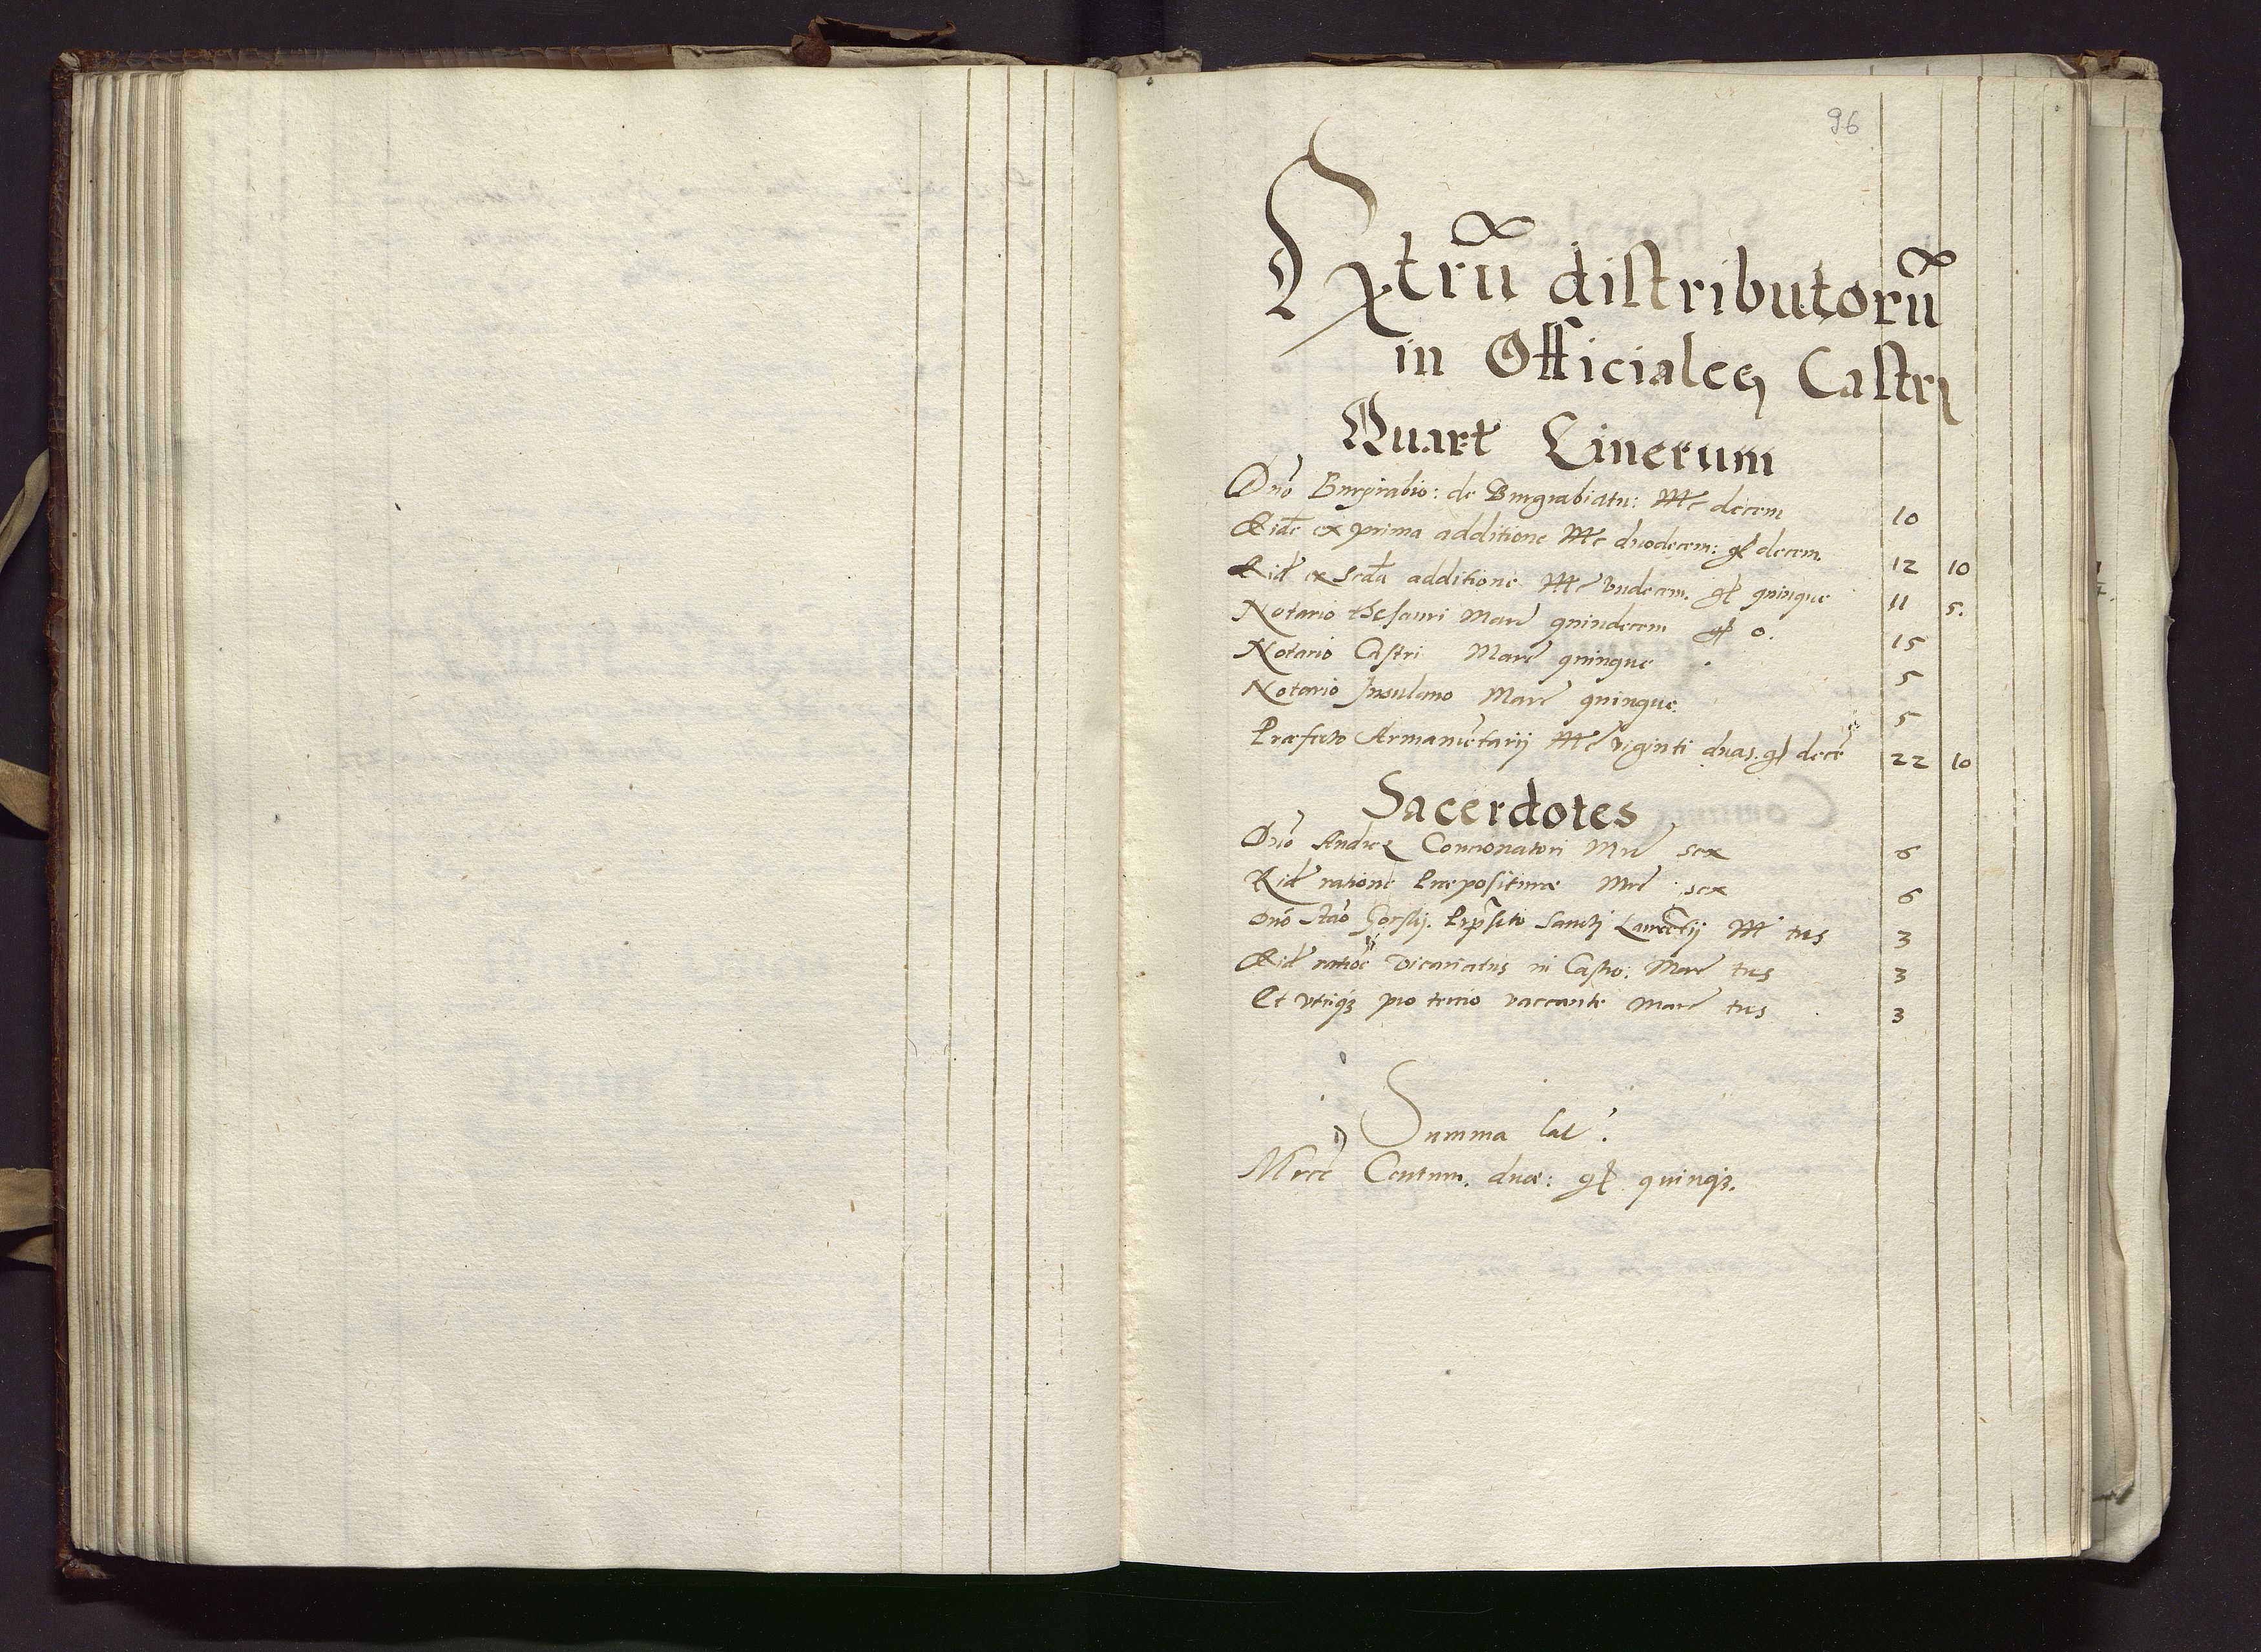 96
Extrũ distributorũ
in Officiales Castri
Quart Cinerum
Dño Burgrabio: de Burgrabiatu: Mrc decem 10
Eide ex prima additione Mrc duodecem: gł decem. 12 10
Eid ex Scda additione Mrc vndecem. gł quinque 11 5.
Notario thesauri Marc quindecem gł 0. 15
Notario Castri Marc quinque 5
Notario Insulano Marc quinque. 5
Præfecto Armamẽtarij Mrc viginti duas. gł decẽ 22 10
Sacerdotes
Dño Andreę Concionatori Mrc sex 6
Eid ratione Præpositurae Mrc sex 6
Dño Stão Gorskj. Prpsito Sanctj Laurẽtij M tres 3
Eid ratiõe vicariatus in Castro: Marc tres 3
Et vtriqз pro tercio vaccante Marc tres 3
Summa lat.
Mrcę Centum. duæ: gł quinqз.